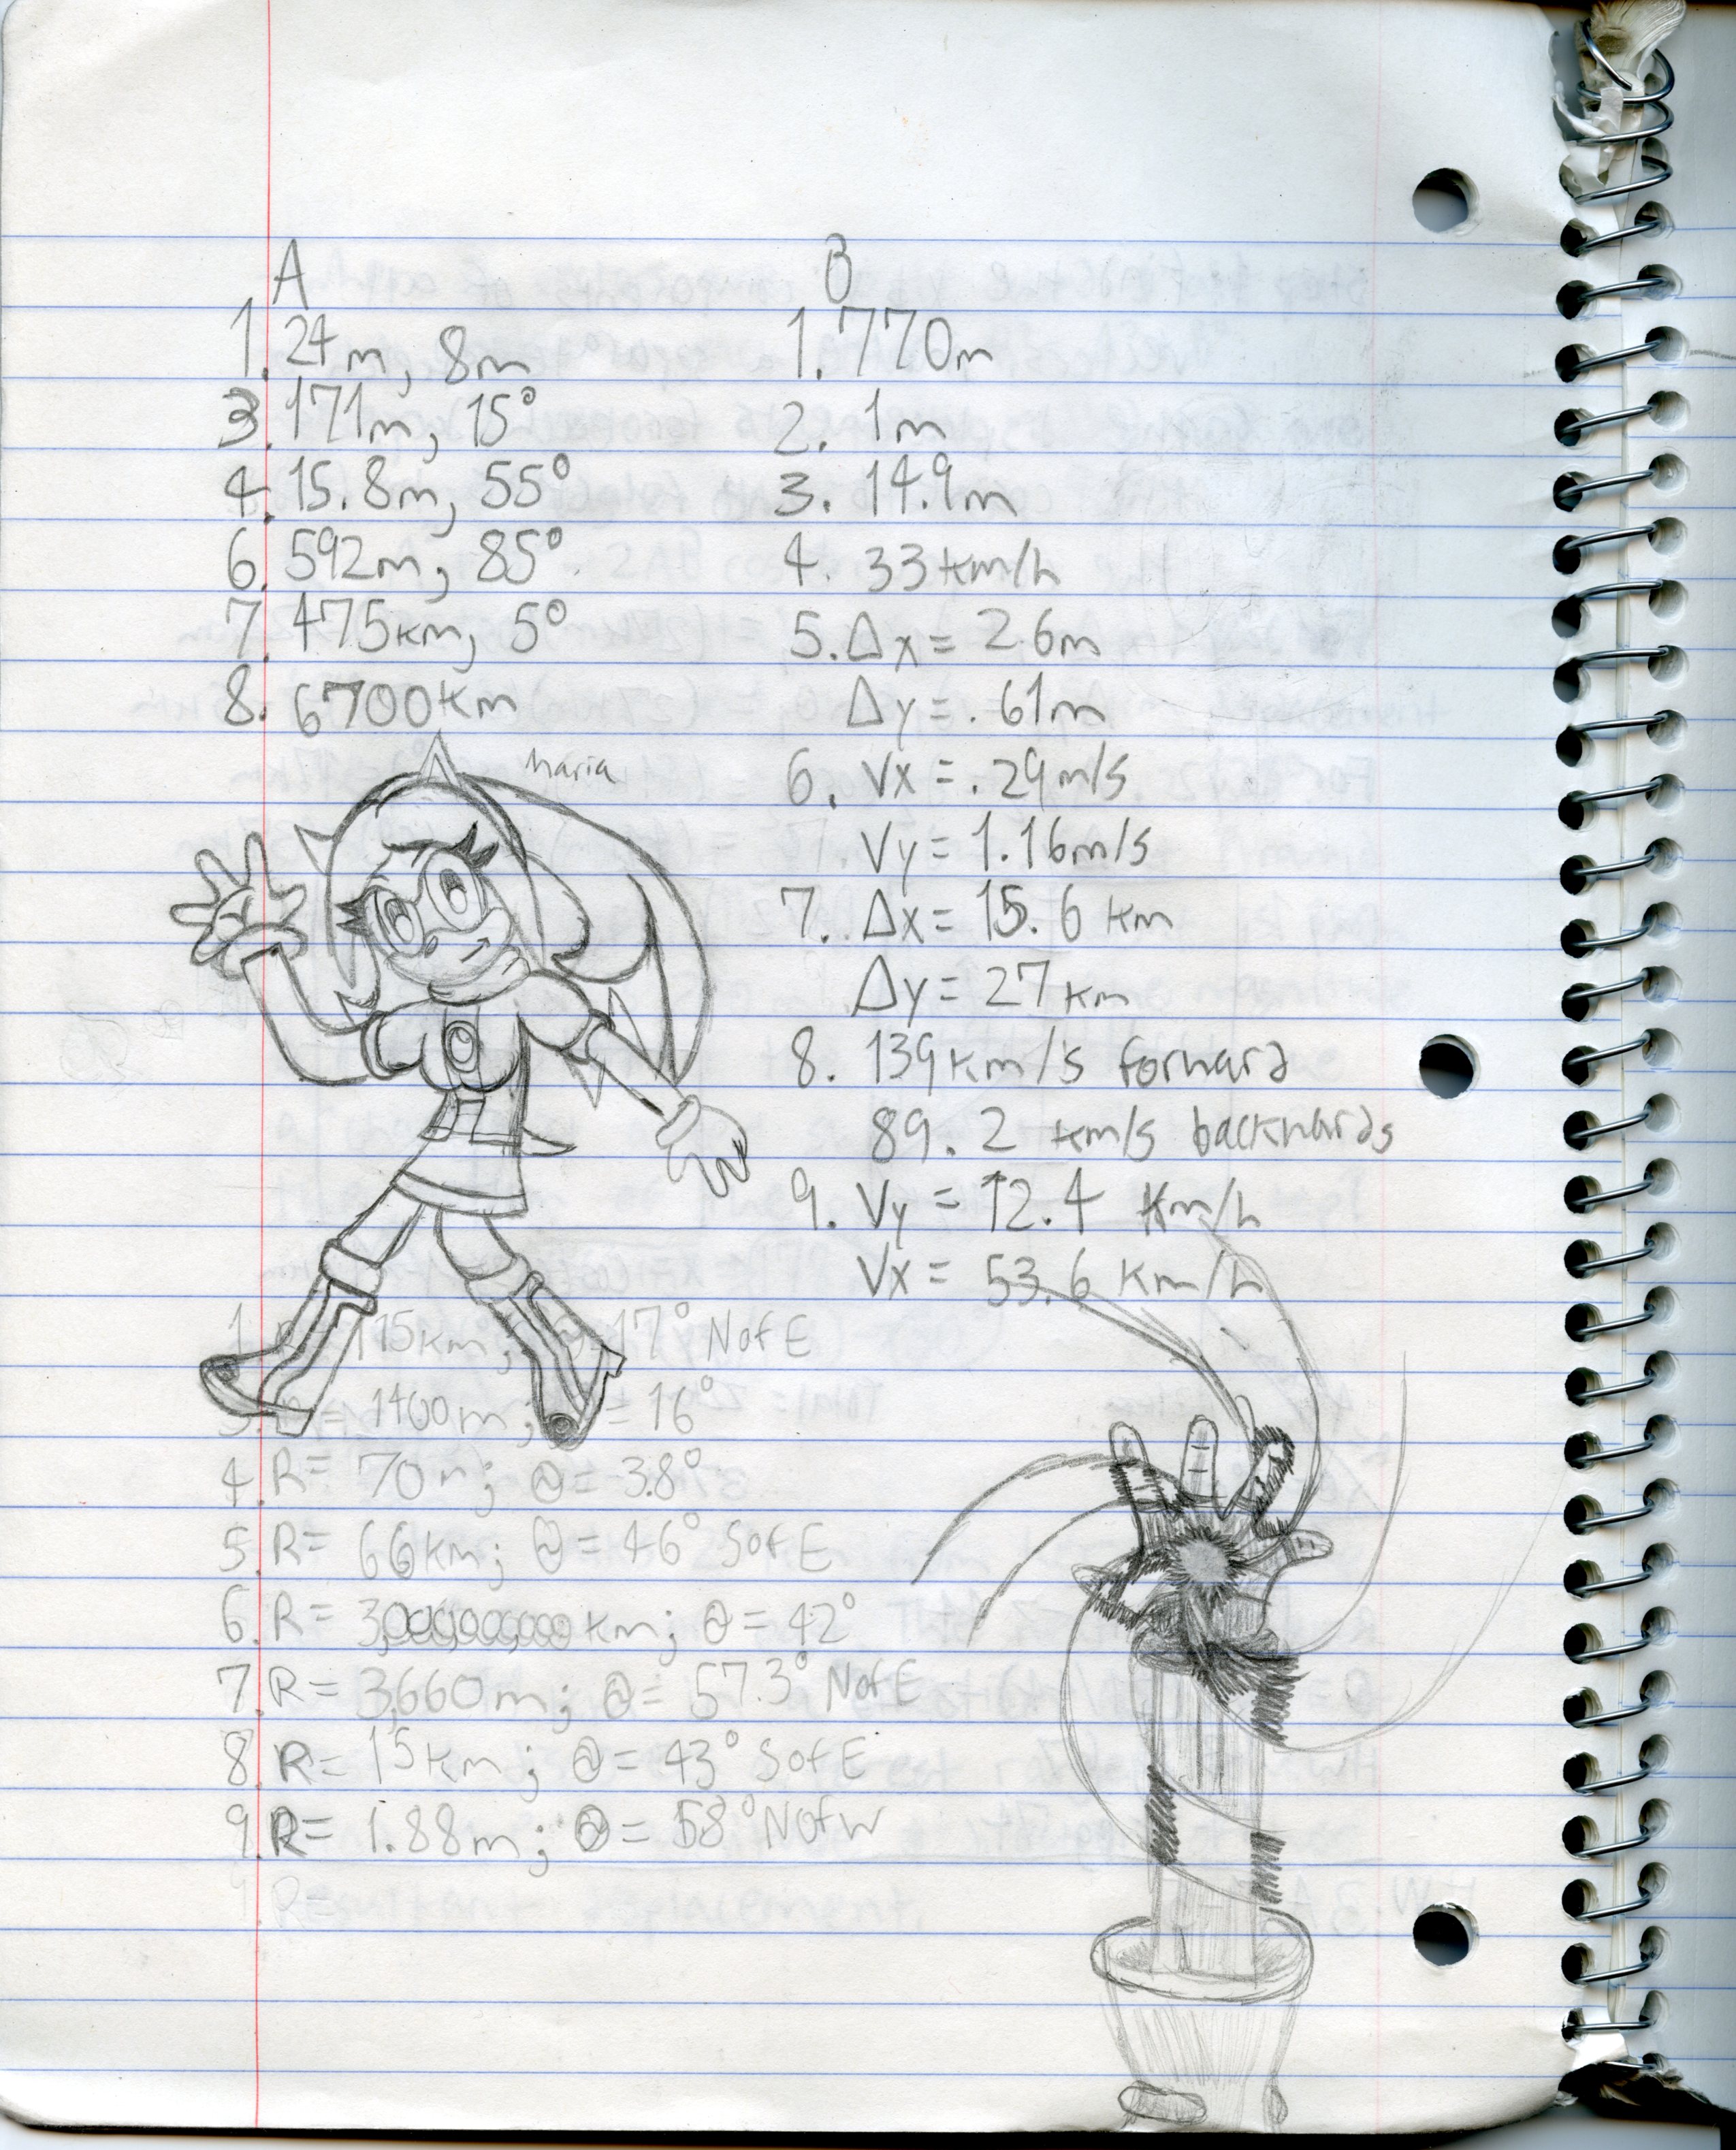 A
1. 24m, 8m
3. 171m, 15°
4. 15.8m, 55°
6. 592m, 85°
7. 475km, 5°
8. 6700km
maria
B
1. 770m
2. 1m
3. 14.9m
4. 33km/h
5. Δx = 2.6m
Δy = .61m
6. Vx = .29m/s
Vy = 1.16m/s
7. Δx = 15.6 km
Δy = 27km
8. 139km/s forward
89.2 km/s backwards
9. Vy = 12.4 km/h
Vx = 53.6 km/h
1. 115km; 17° NofE
3. 1400m; = 16°
4. R= 70m; θ= 3.8°
5. R= 66km; θ= 46° SofE
6. R= 3,000,000,000km; θ= 42°
7. R= 3,660m; θ= 57.3° NofE
8. R= 15km; θ= 43° SofE
9. R= 1.88m; θ= 58° NofW
R=